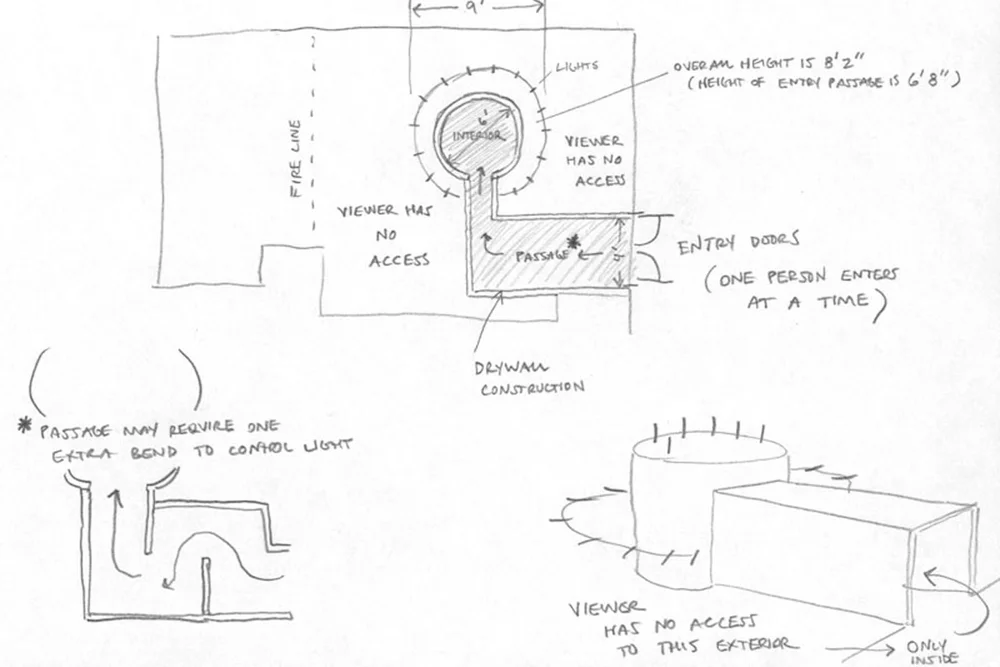 9'
LIGHTS
OVERALL HEIGHT IS 8'2"
(HEIGHT OF ENTRY PASSAGE IS 6'8")
6'
INTERIOR
FIRE LINE
VIEWER
HAS NO
ACCESS
VIEWER HAS
NO
ACCESS
PASSAGE *
ENTRY DOORS
(ONE PERSON ENTERS
AT A TIME)
DRYWALL
CONSTRUCTION
* PASSAGE MAY REQUIRE ONE
EXTRA BEND TO CONTROL LIGHT
VIEWER
HAS NO ACCESS
TO THIS EXTERIOR
ONLY
INSIDE